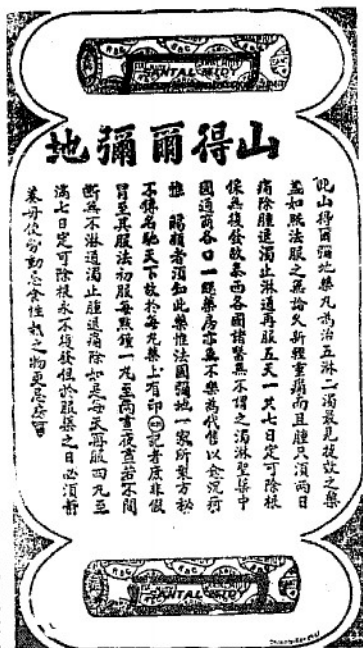 SANTAL MIDY
山得爾彌地
此山得爾彌地藥丸為治五淋二濁最見捷效之藥
盖如照法服之無論久新輕重痛而且腫只須兩日
痛除腫退濁止淋通再服五天一共七日定可除根
保無復發故泰西各國諸醫無不謂之濁淋聖藥中
國通商各口一經藥房亦無不樂為代售以 沉疴
惟 賜顧者須知此藥惟法國彌地一家所製方秘
不傳名馳天下故於每丸藥上有印 記者庶非假
冒至其服法初服每點鐘一丸至兩宵夜宵若不間
斷無不淋通濁止腫退痛除如是每天再服四丸至
滿七日定可除根永不復發但於服藥之日必須靜
養毋使勞動忌食性熱之物更忌房
SANTAL MIDY